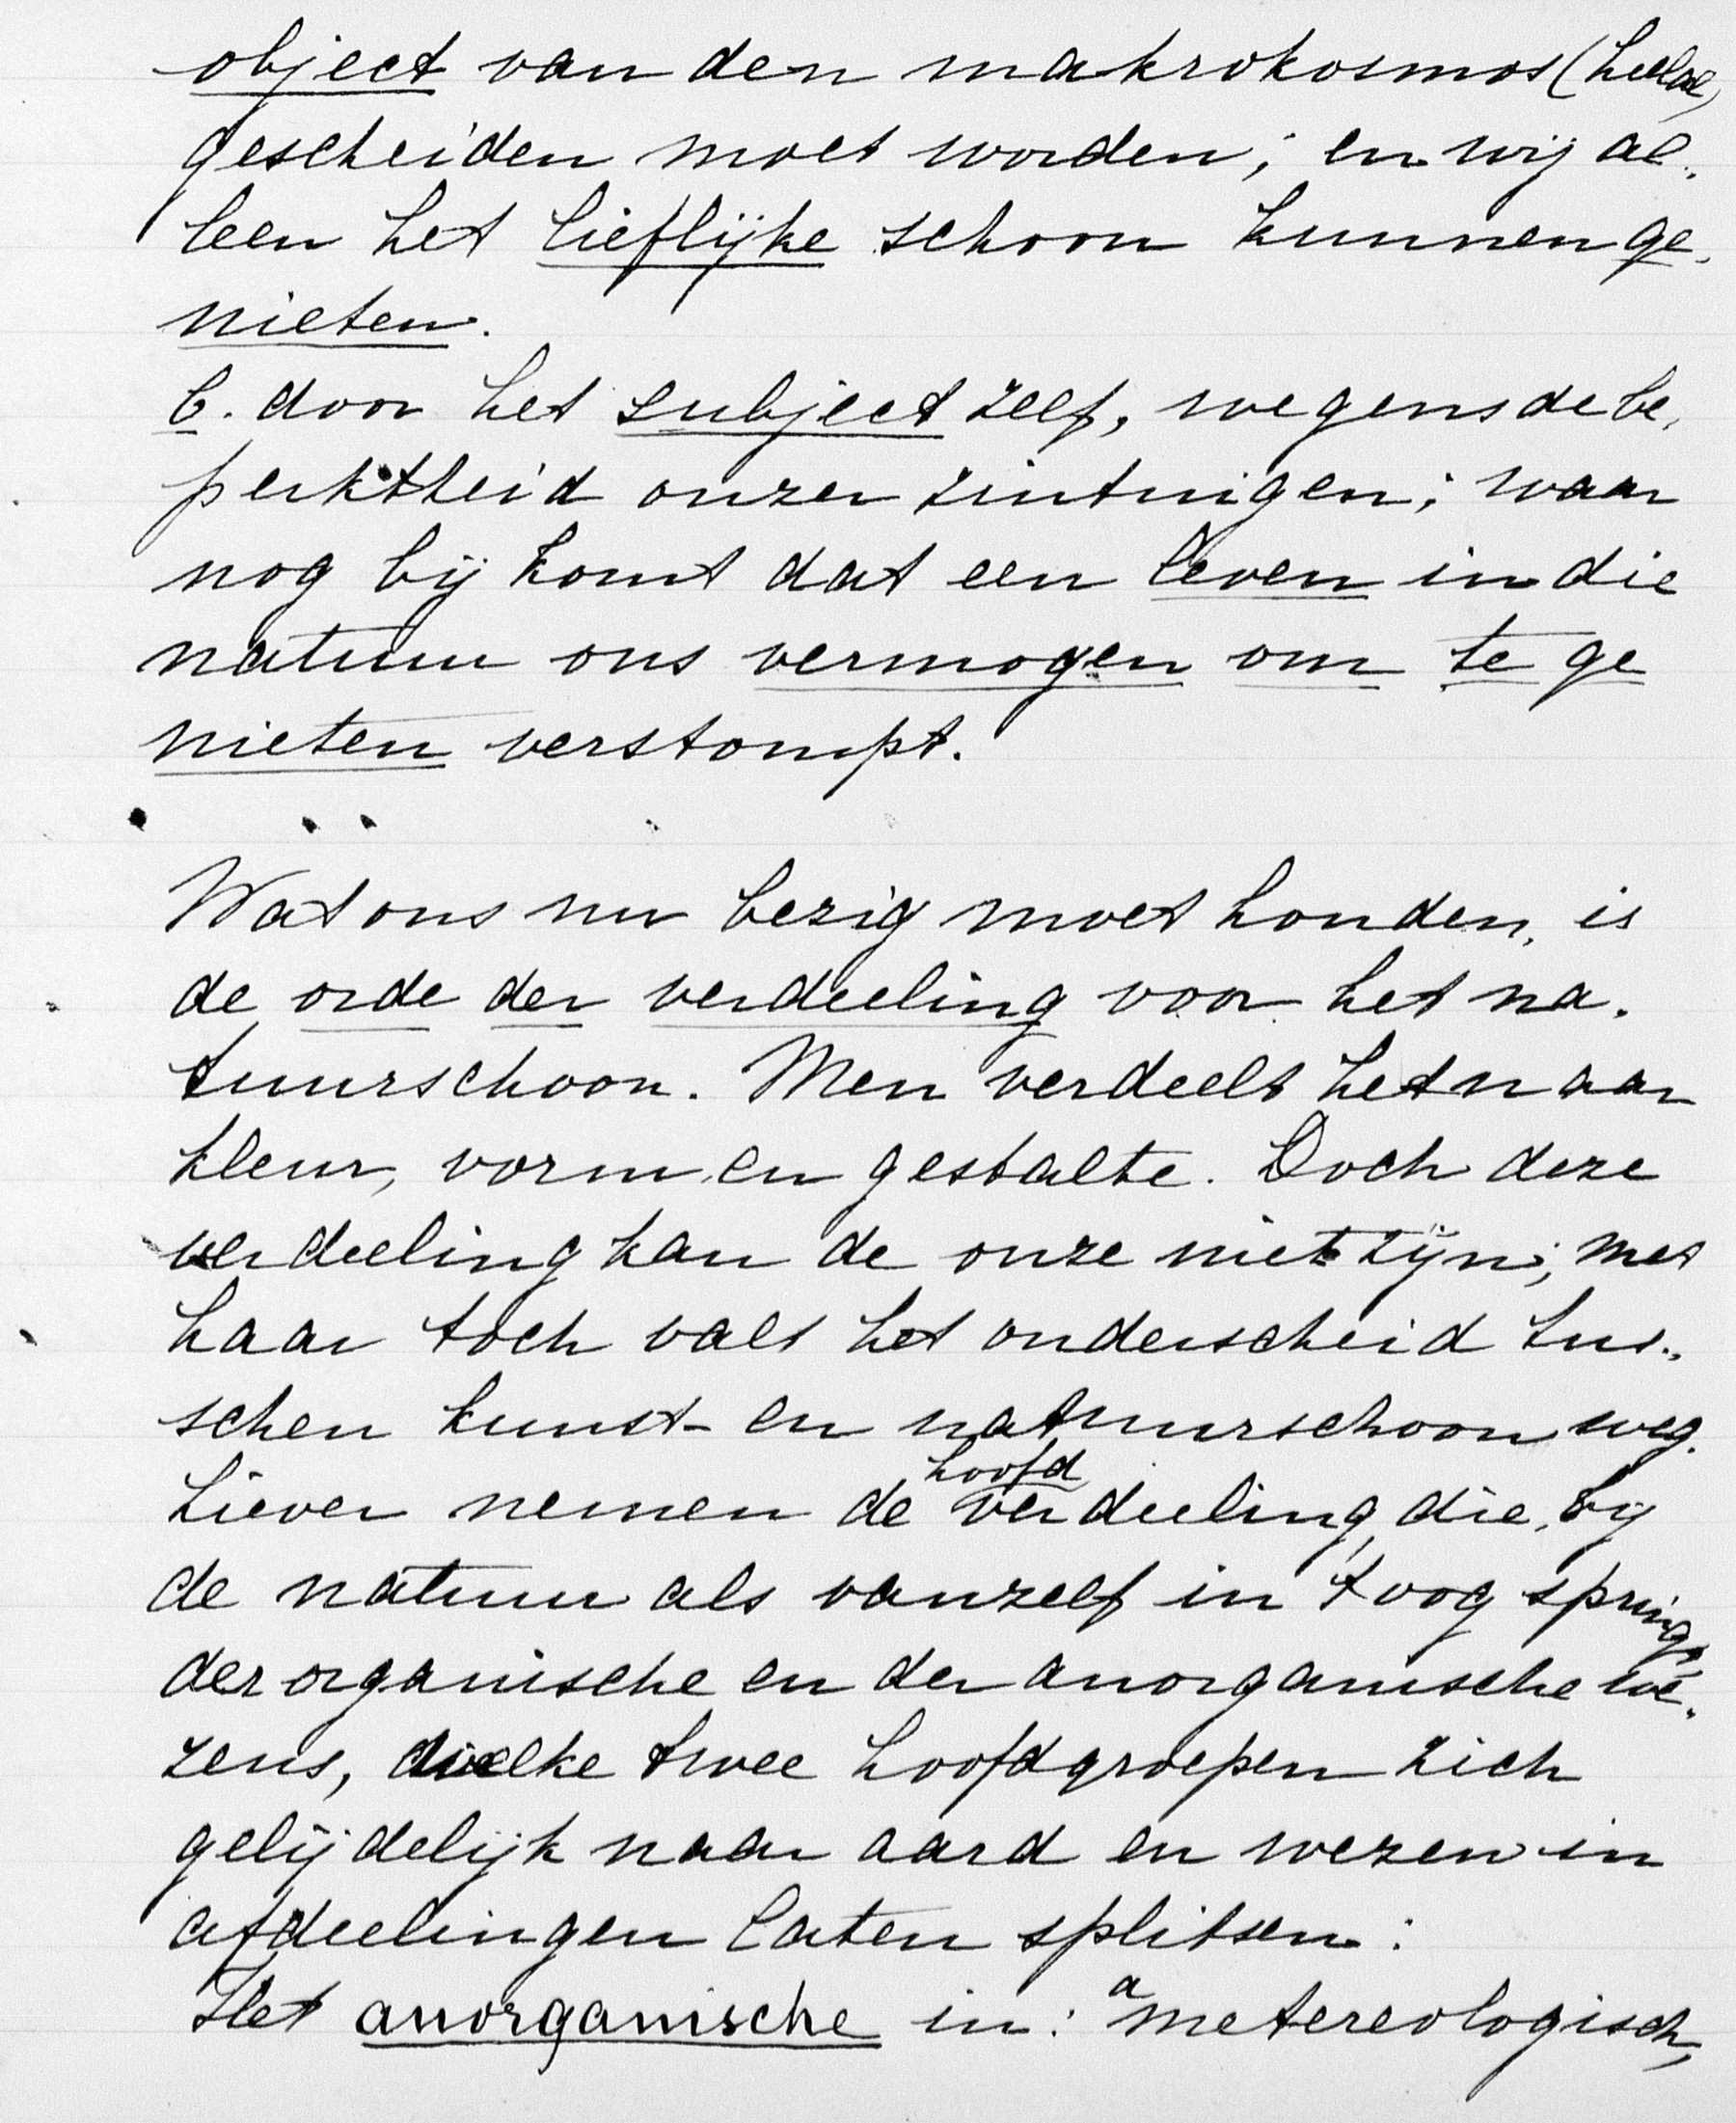 object van den makrokosmos (heelal)
gescheiden moet worden; en wij al-
leen het lieflijke schoon kunnen ge-
nieten.
b. door het subject zelf, wegens de be-
perktheid onzer zintuigen; waar
nog bij komt dat een leven in die
natuur ons vermogen om te ge
nieten verstompt.
Wat ons nu bezig moet houden, is
de orde der verdeeling voor het na-
tuurschoon. Men verdeelt het naar
kleur, vorm en gestalte. Doch deze
verdeeling kan de onze niet zijn; met
haar toch valt het onderscheid tus-
schen kunst- en natuurschoon weg.
Liever nemen de hoofdverdeeling, die, bij
de natuur als vanzelf in 't oog springt,
der organische en der anorganische we-
zens, welke twee hoofdgroepen zich
gelijdelijk naar aard en wezen in
afdeelingen laten splitsen:
Het anorganische in: a metereologisch,